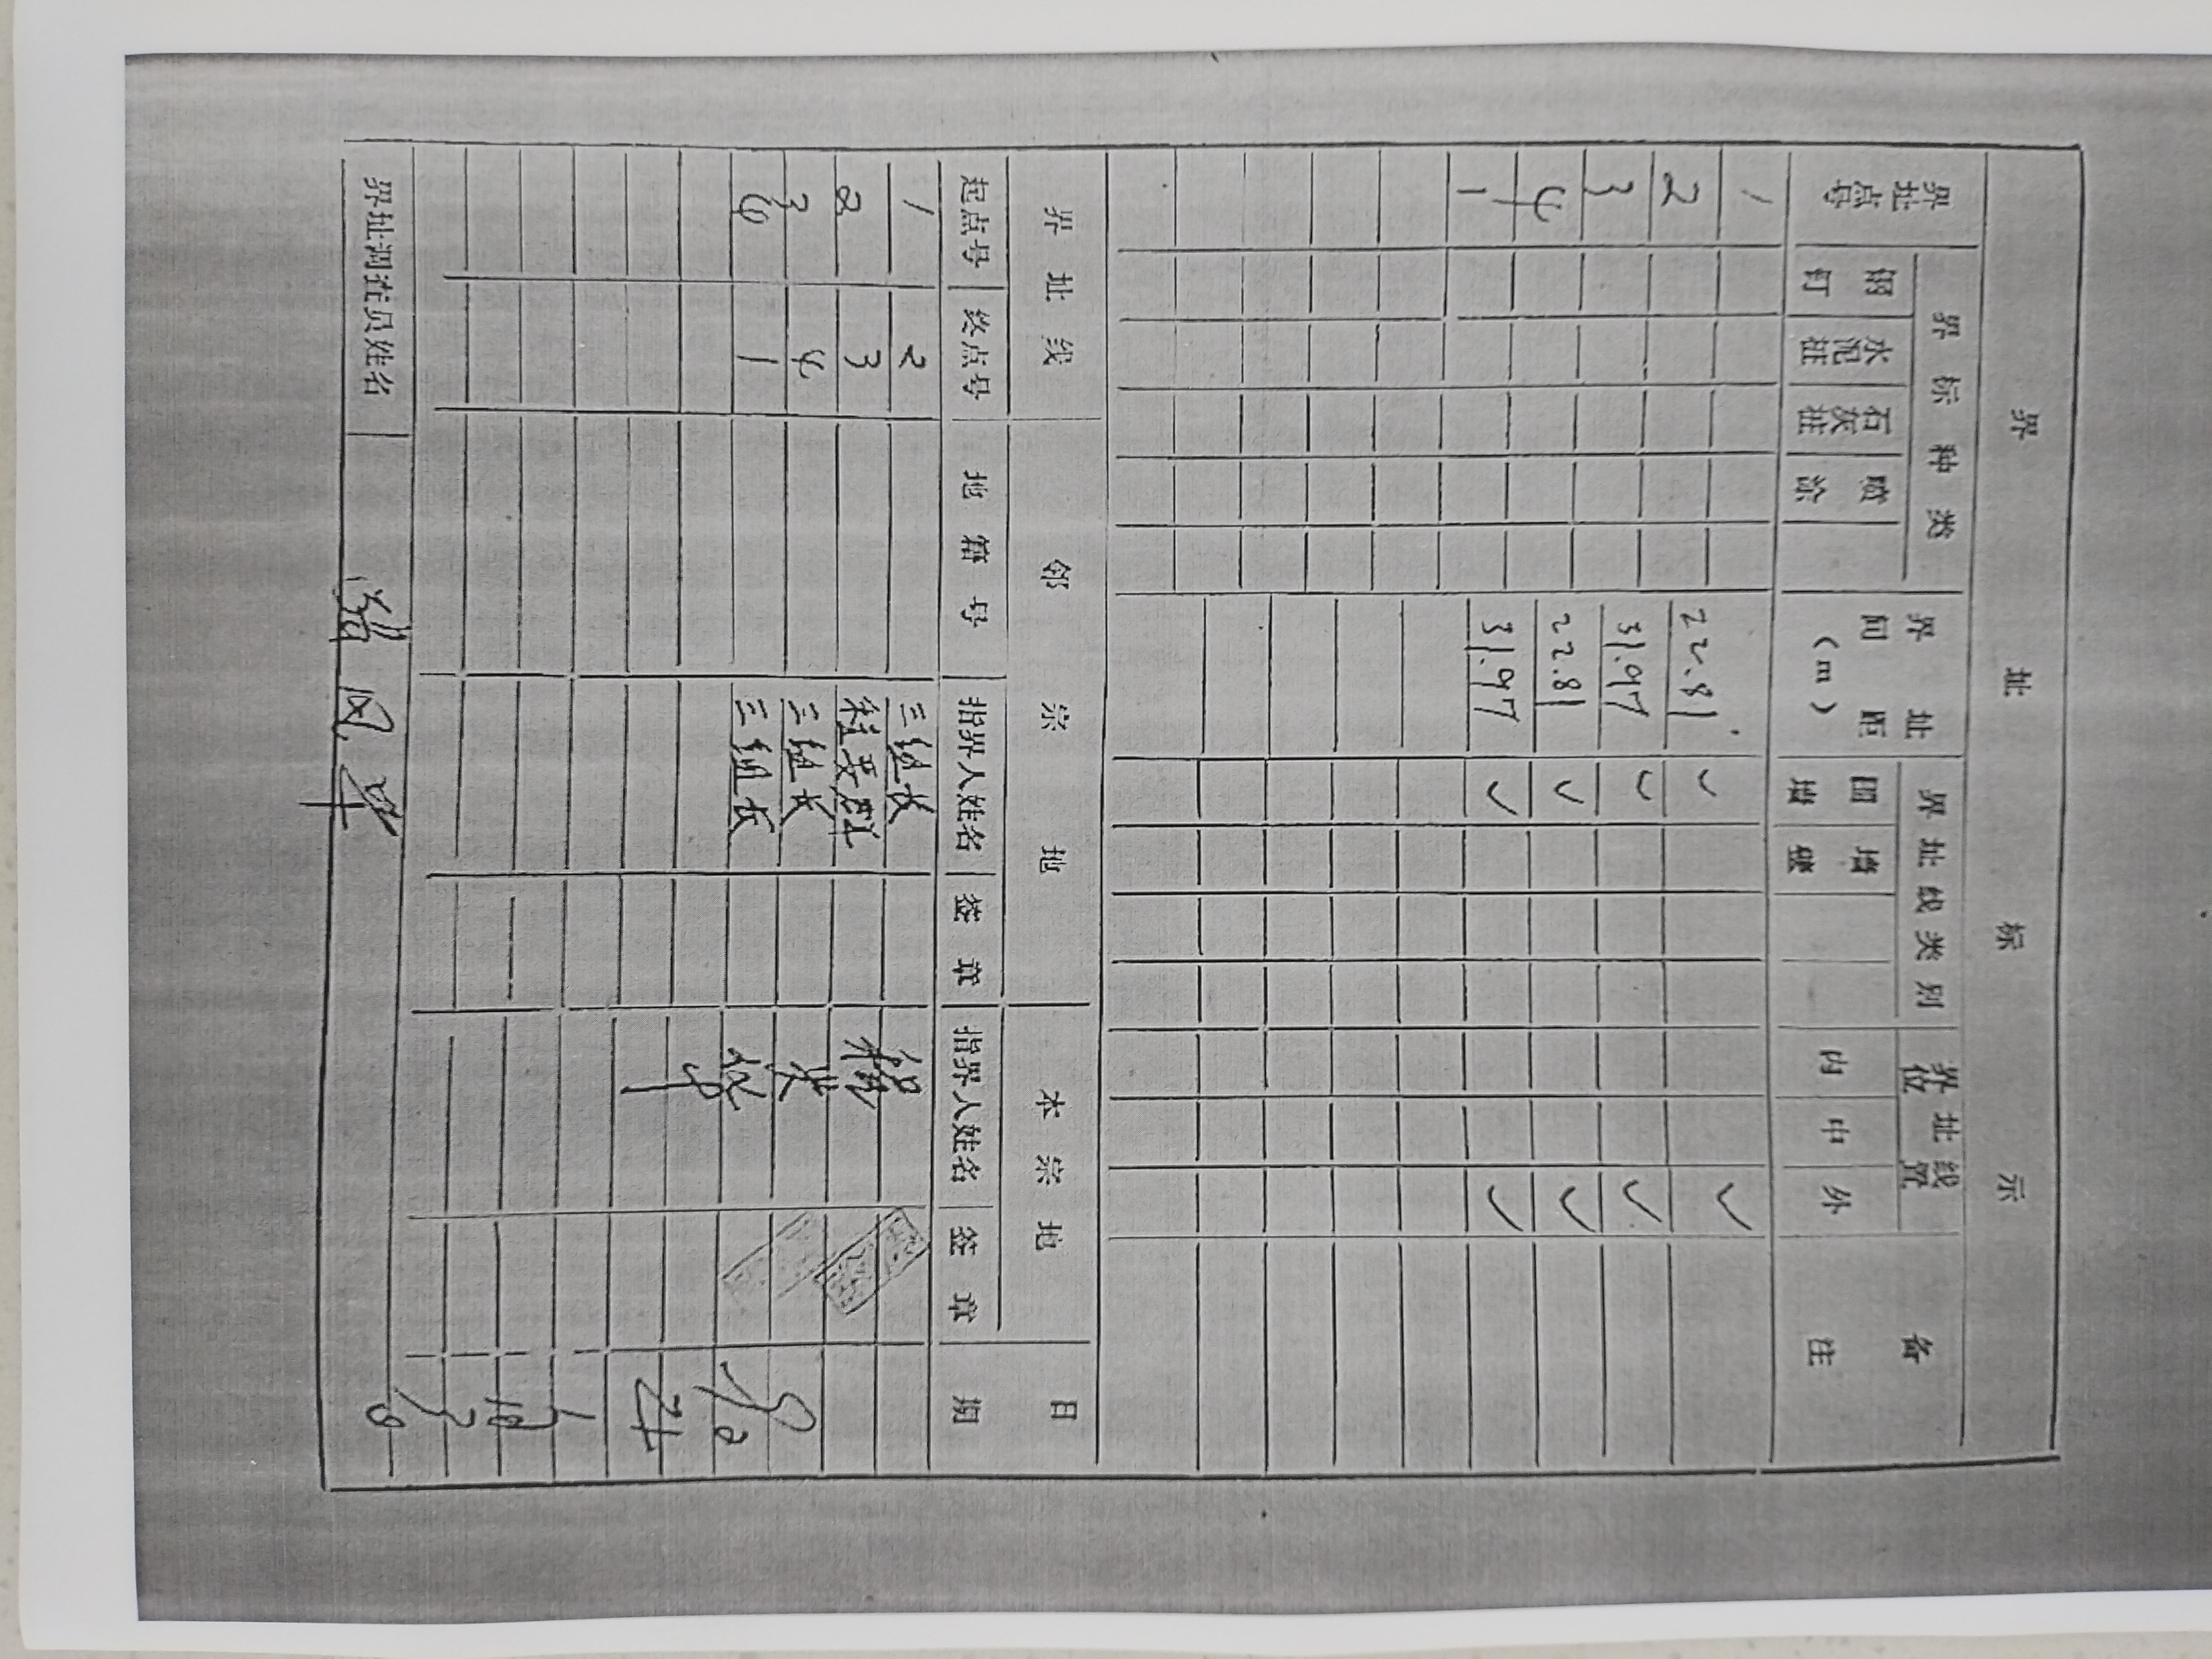 界址标示
界址点号 界标种类 界址间距(m) 界址线类别 界址线位置 备注
钢钉 水泥桩 石灰桩 喷涂 围墙 墙壁 内 中 外
1
22.81 ✓ ✓
2
31.97 ✓ ✓
3
22.81 ✓ ✓
4
31.97 ✓ ✓
1
界址线 邻宗地 本宗地 日期
起点号 终点号 地籍号 指界人姓名 签章 指界人姓名 签章
1 2 三组长
2 3 程要群
3 4 三组长
4 1 三组长
界址调查员姓名